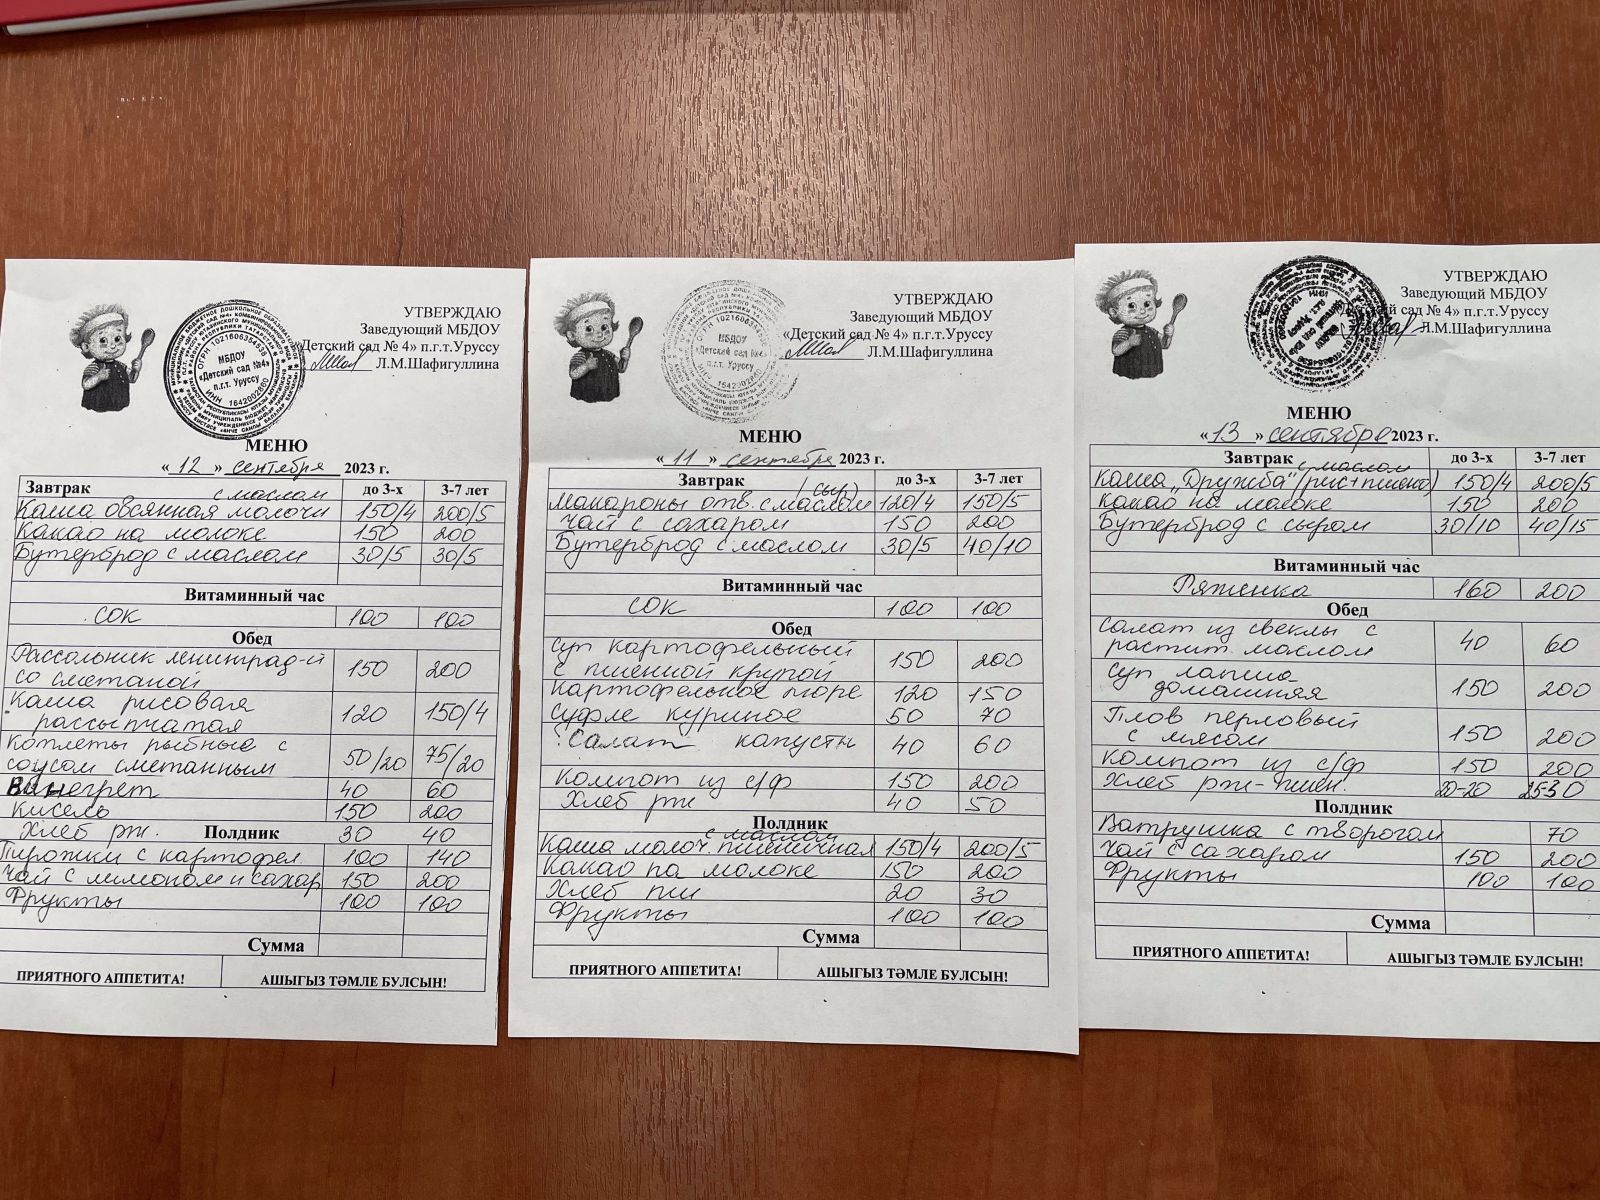 УТВЕРЖДАЮ
Заведующий МБДОУ
«Детский сад № 4» п.г.т.Уруссу
Л.М.Шафигуллина
МБДОУ
«Детский сад №4»
п.г.т. Уруссу
ОГРН 1021606364636
ИНН 1642002860
МЕНЮ
« 12 » сентября 2023 г.
Завтрак до 3-х 3-7 лет
с маслом
Каша овсянная молочн 150/4 200/5
Какао на молоке 150 200
Бутерброд с маслом 30/5 30/5
Витаминный час
сок 100 100
Обед
Рассольник ленинград-й
со сметаной 150 200
Каша рисовая
рассыпчатая 120 150/4
Котлеты рыбные с
соусом сметанным 50/20 75/20
Винегрет 40 60
кисель 150 200
Хлеб рж. 30 40
Полдник
Пирожки с картофел. 100 140
Чай с лимоном и сахар 150 200
Фрукты 100 100
Сумма
ПРИЯТНОГО АППЕТИТА! АШЫГЫЗ ТӘМЛЕ БУЛСЫН!
УТВЕРЖДАЮ
Заведующий МБДОУ
«Детский сад № 4» п.г.т.Уруссу
Л.М.Шафигуллина
МБДОУ
«Детский сад №4»
п.г.т. Уруссу
1642002860
МЕНЮ
« 11 » сентября 2023 г.
Завтрак до 3-х 3-7 лет
(сыр)
Макароны отв. с маслом 120/4 150/5
Чай с сахаром 150 200
Бутерброд с маслом 30/5 40/10
Витаминный час
сок 100 100
Обед
Суп картофельный
с пшенной крупой 150 200
Картофельное пюре 120 150
Суфле куриное 50 70
Салат капустн 40 60
Компот из с/ф 150 200
Хлеб рж 40 50
Полдник
с маслом
Каша молоч. пшеничная 150/4 200/5
Какао на молоке 150 200
Хлеб пш 20 30
Фрукты 100 100
Сумма
ПРИЯТНОГО АППЕТИТА! АШЫГЫЗ ТӘМЛЕ БУЛСЫН!
УТВЕРЖДАЮ
Заведующий МБДОУ
сад № 4» п.г.т.Уруссу
Л.М.Шафигуллина
МЕНЮ
« 13 » сентября 2023 г.
Завтрак до 3-х 3-7 лет
с маслом
Каша „Дружба" (рис+пшено) 150/4 200/5
Какао на молоке 150 200
Бутерброд с сыром 30/10 40/15
Витаминный час
Ряженка 160 200
Обед
Салат из свеклы с
растит. маслом 40 60
Суп лапша
домашняя 150 200
Плов перловый
с мясом 150 200
Компот из с/ф 150 200
Хлеб рж-пшен. 20-20 25-30
Полдник
Ватрушка с творогом 70
Чай с сахаром 150 200
Фрукты 100 100
Сумма
ПРИЯТНОГО АППЕТИТА! АШЫГЫЗ ТӘМЛЕ БУЛСЫН!